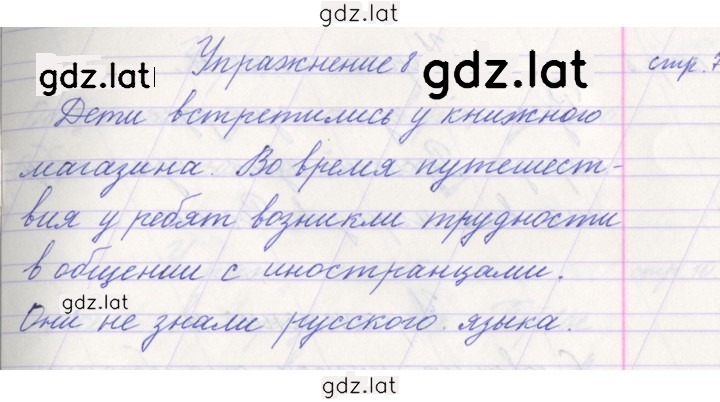 gdz.lat
Упражнение 8 стр. 7
gdz.lat gdz.lat
Дети встретились у книжного
магазина. Во время путешест-
вия у ребят возникли трудности
в общении с иностранцами.
gdz.lat
Они не знали русского языка.
gdz.lat